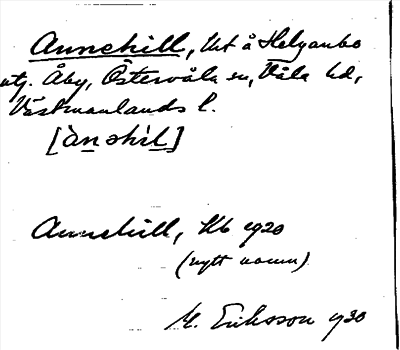 Annehill, lht å Helganbo
utj. Åby, Östervåla sn, Våla hd,
Västmanlands l.
[àn əhìl]
Annehill, Kb 1920
(nytt namn)
M. Eriksson 1930